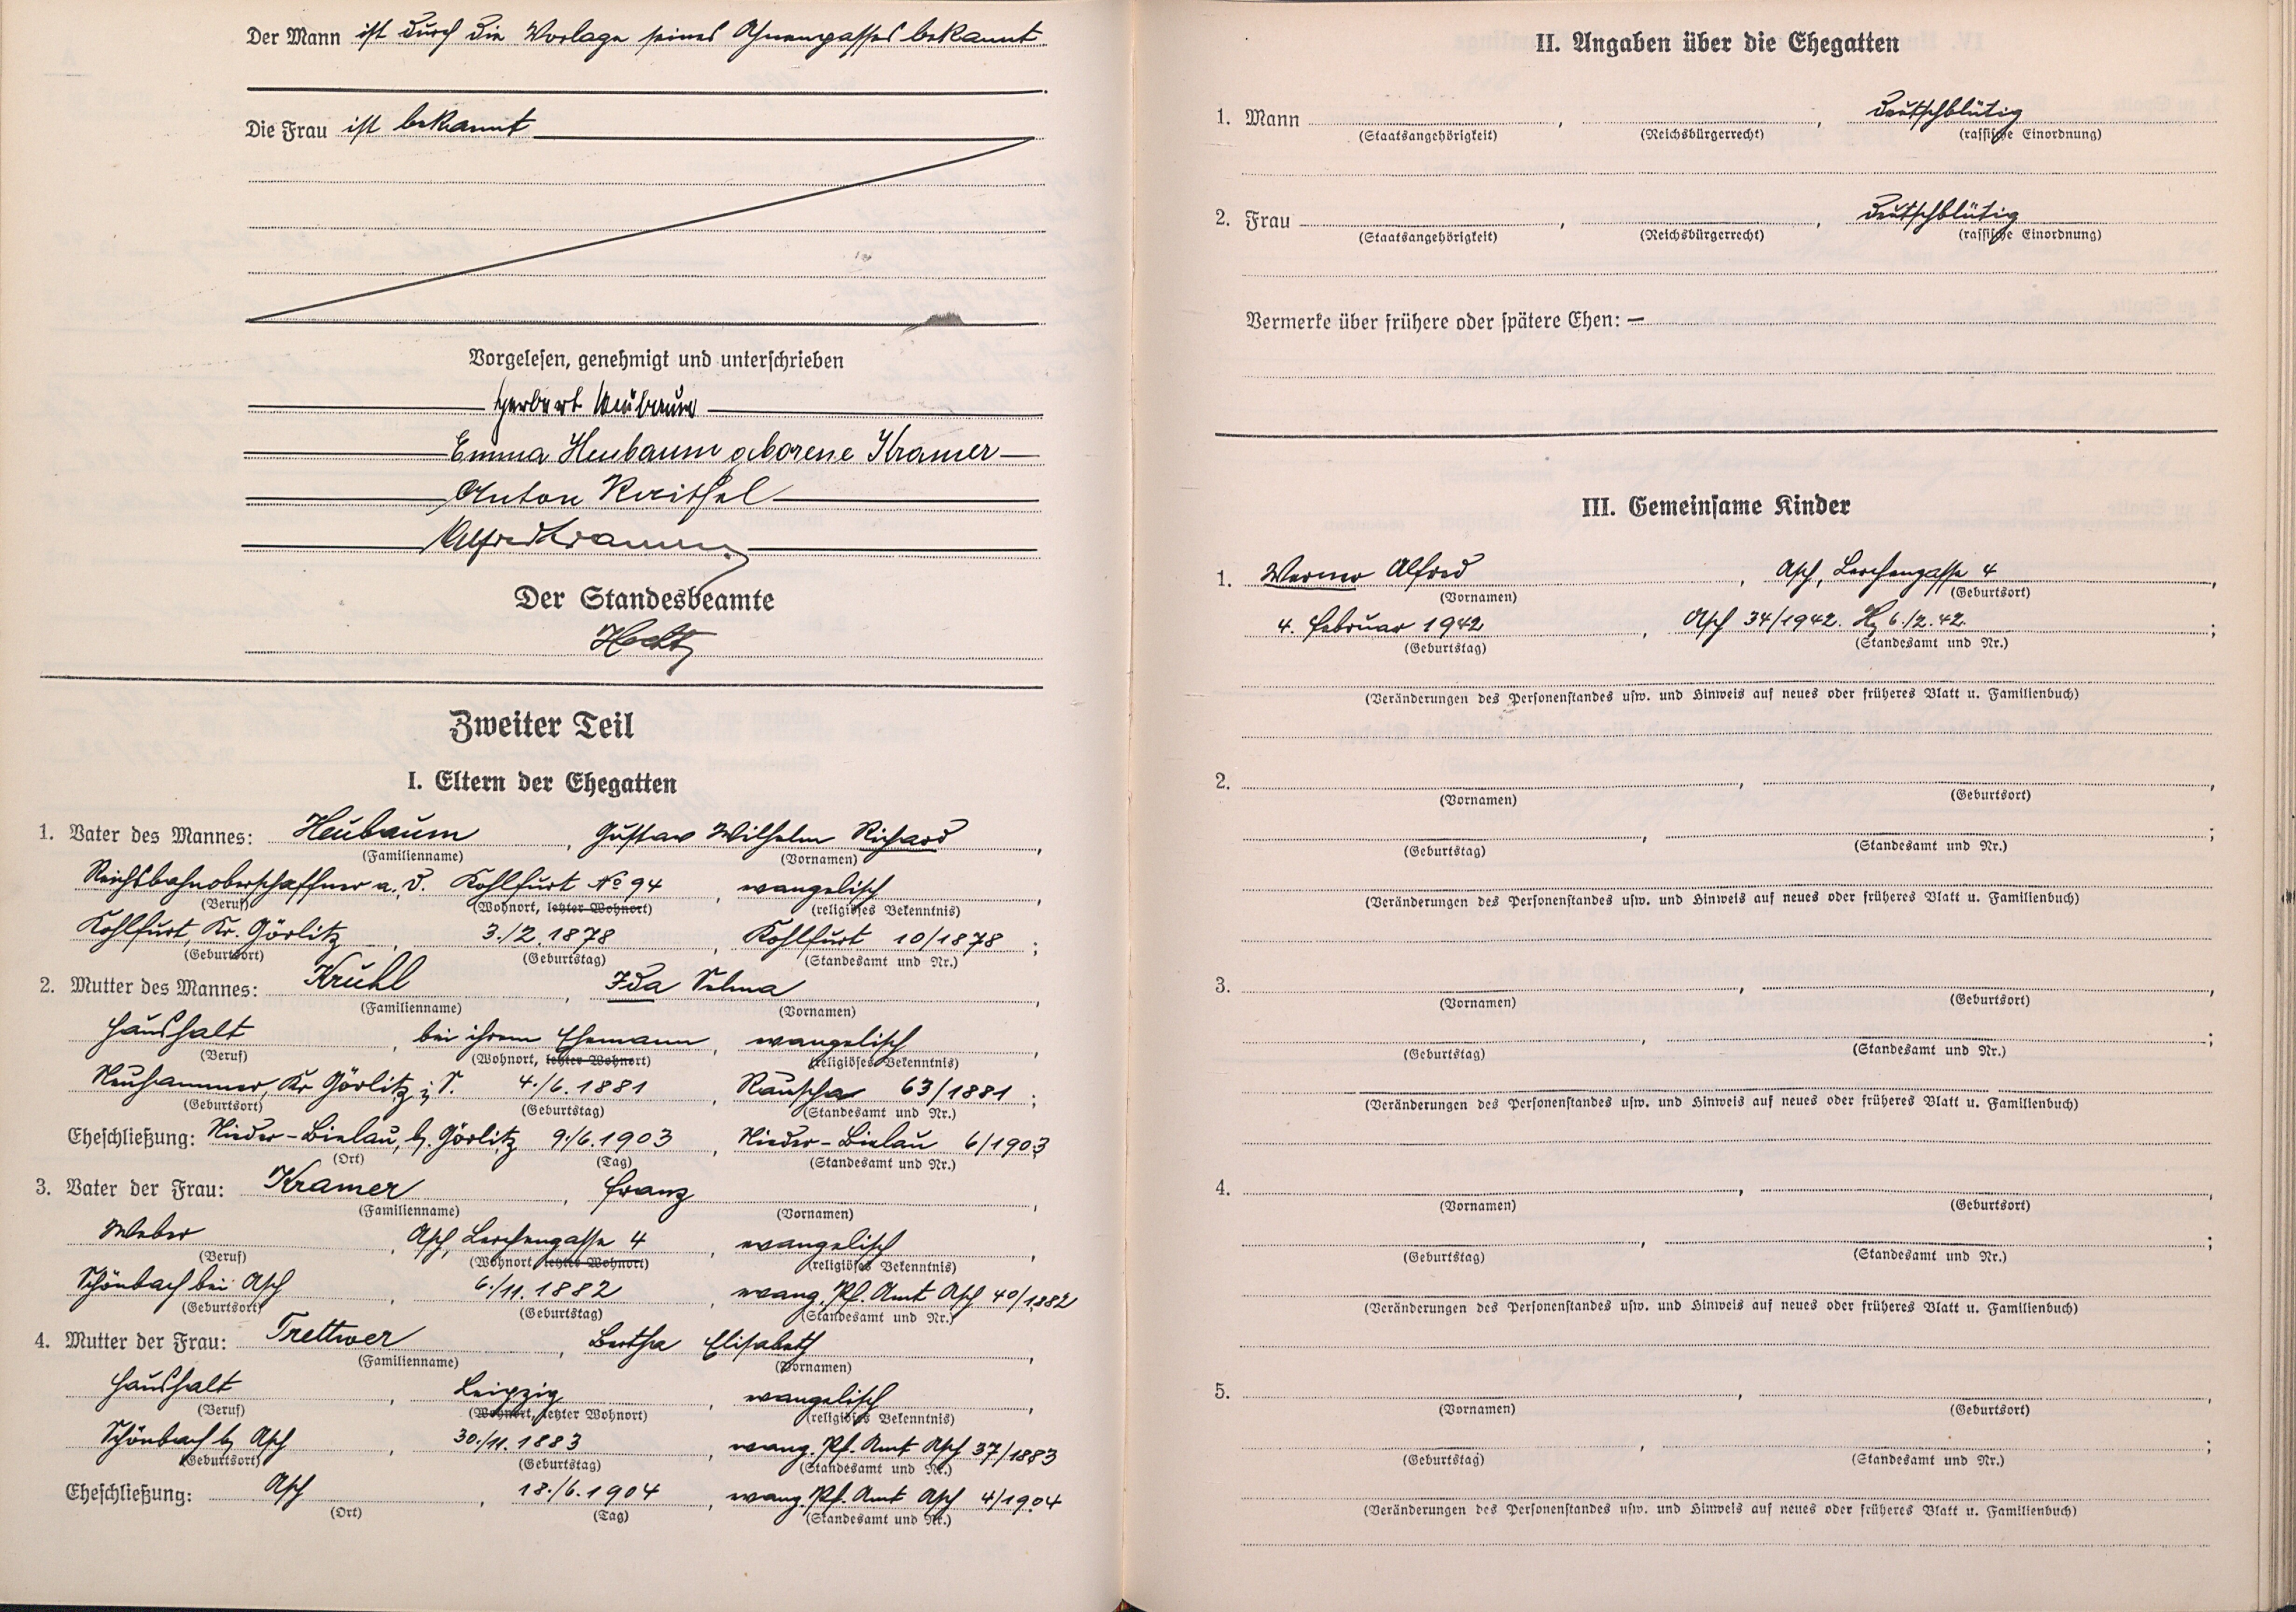 Der Mann ist durch die Vorlage seines Ahnenpasses bekannt.
Die Frau ist bekannt
Vorgelesen, genehmigt und unterschrieben
Herbert Heubaum
Emma Heubaum geborene Kramer
Anton
Alfred
Der Standesbeamte
Zweiter Teil
I. Eltern der Ehegatten
1. Vater des Mannes: Heubaum, Gustav Wilhelm Richard,
(Familienname) (Vornamen)
Reichsbahnoberschaffner a. D. Kohlfurt No 94, evangelisch,
(Beruf) (Wohnort, letzter Wohnort) (religiöses Bekenntnis)
Kohlfurt, Kr. Görlitz, 3./2.1878, Kohlfurt 10/1878;
(Geburtsort) (Geburtstag) (Standesamt und Nr.)
2. Mutter des Mannes: Krühl, Ida Selma,
(Familienname) (Vornamen)
Haushalt, bei ihrem Ehemann, evangelisch,
(Beruf) (Wohnort, letzter Wohnort) (religiöses Bekenntnis)
Neuhammer, Kr Görlitz i. S. 4./6.1881, Rauscha 63/1881;
(Geburtsort) (Geburtstag) (Standesamt und Nr.)
Eheschließung: Nieder-Bielau, b. Görlitz 9./6.1903, Nieder-Bielau 6/1903
(Ort) (Tag) (Standesamt und Nr.)
3. Vater der Frau: Kramer, Franz,
(Familienname) (Vornamen)
Weber, Asch, Lerchengasse 4, evangelisch,
(Beruf) (Wohnort, letzter Wohnort) (religiöses Bekenntnis)
Schönbach bei Asch, 6./11.1882, evang. Pf. Amt Asch 40/1882
(Geburtsort) (Geburtstag) (Standesamt und Nr.)
4. Mutter der Frau: Trettwer, Bertha Elisabeth,
(Familienname) (Vornamen)
Haushalt, Leipzig, evangelisch,
(Beruf) (Wohnort, letzter Wohnort) (religiöses Bekenntnis)
Schönbach b/ Asch, 30./11.1883, evang. Pf. Amt Asch 37/1883
(Geburtsort) (Geburtstag) (Standesamt und Nr.)
Eheschließung: Asch, 18./6.1904, evang. Pf. Amt Asch 4/1904
(Ort) (Tag) (Standesamt und Nr.)
II. Angaben über die Ehegatten
1. Mann , , deutschblütig
(Staatsangehörigkeit) (Reichsbürgerrecht) (rassische Einordnung)
2. Frau , , deutschblütig
(Staatsangehörigkeit) (Reichsbürgerrecht) (rassische Einordnung)
Vermerke über frühere oder spätere Ehen: —
III. Gemeinsame Kinder
1. Werner Alfred, Asch, Lerchengasse 4,
(Vornamen) (Geburtsort)
4. Februar 1942, Asch 34/1942. Hz 6./2.42.;
(Geburtstag) (Standesamt und Nr.)
(Veränderungen des Personenstandes usw. und Hinweis auf neues oder früheres Blatt u. Familienbuch)
2. , ,
(Vornamen) (Geburtsort)
, ;
(Geburtstag) (Standesamt und Nr.)
(Veränderungen des Personenstandes usw. und Hinweis auf neues oder früheres Blatt u. Familienbuch)
3. , ,
(Vornamen) (Geburtsort)
, ;
(Geburtstag) (Standesamt und Nr.)
(Veränderungen des Personenstandes usw. und Hinweis auf neues oder früheres Blatt u. Familienbuch)
4. , ,
(Vornamen) (Geburtsort)
, ;
(Geburtstag) (Standesamt und Nr.)
(Veränderungen des Personenstandes usw. und Hinweis auf neues oder früheres Blatt u. Familienbuch)
5. , ,
(Vornamen) (Geburtsort)
, ;
(Geburtstag) (Standesamt und Nr.)
(Veränderungen des Personenstandes usw. und Hinweis auf neues oder früheres Blatt u. Familienbuch)